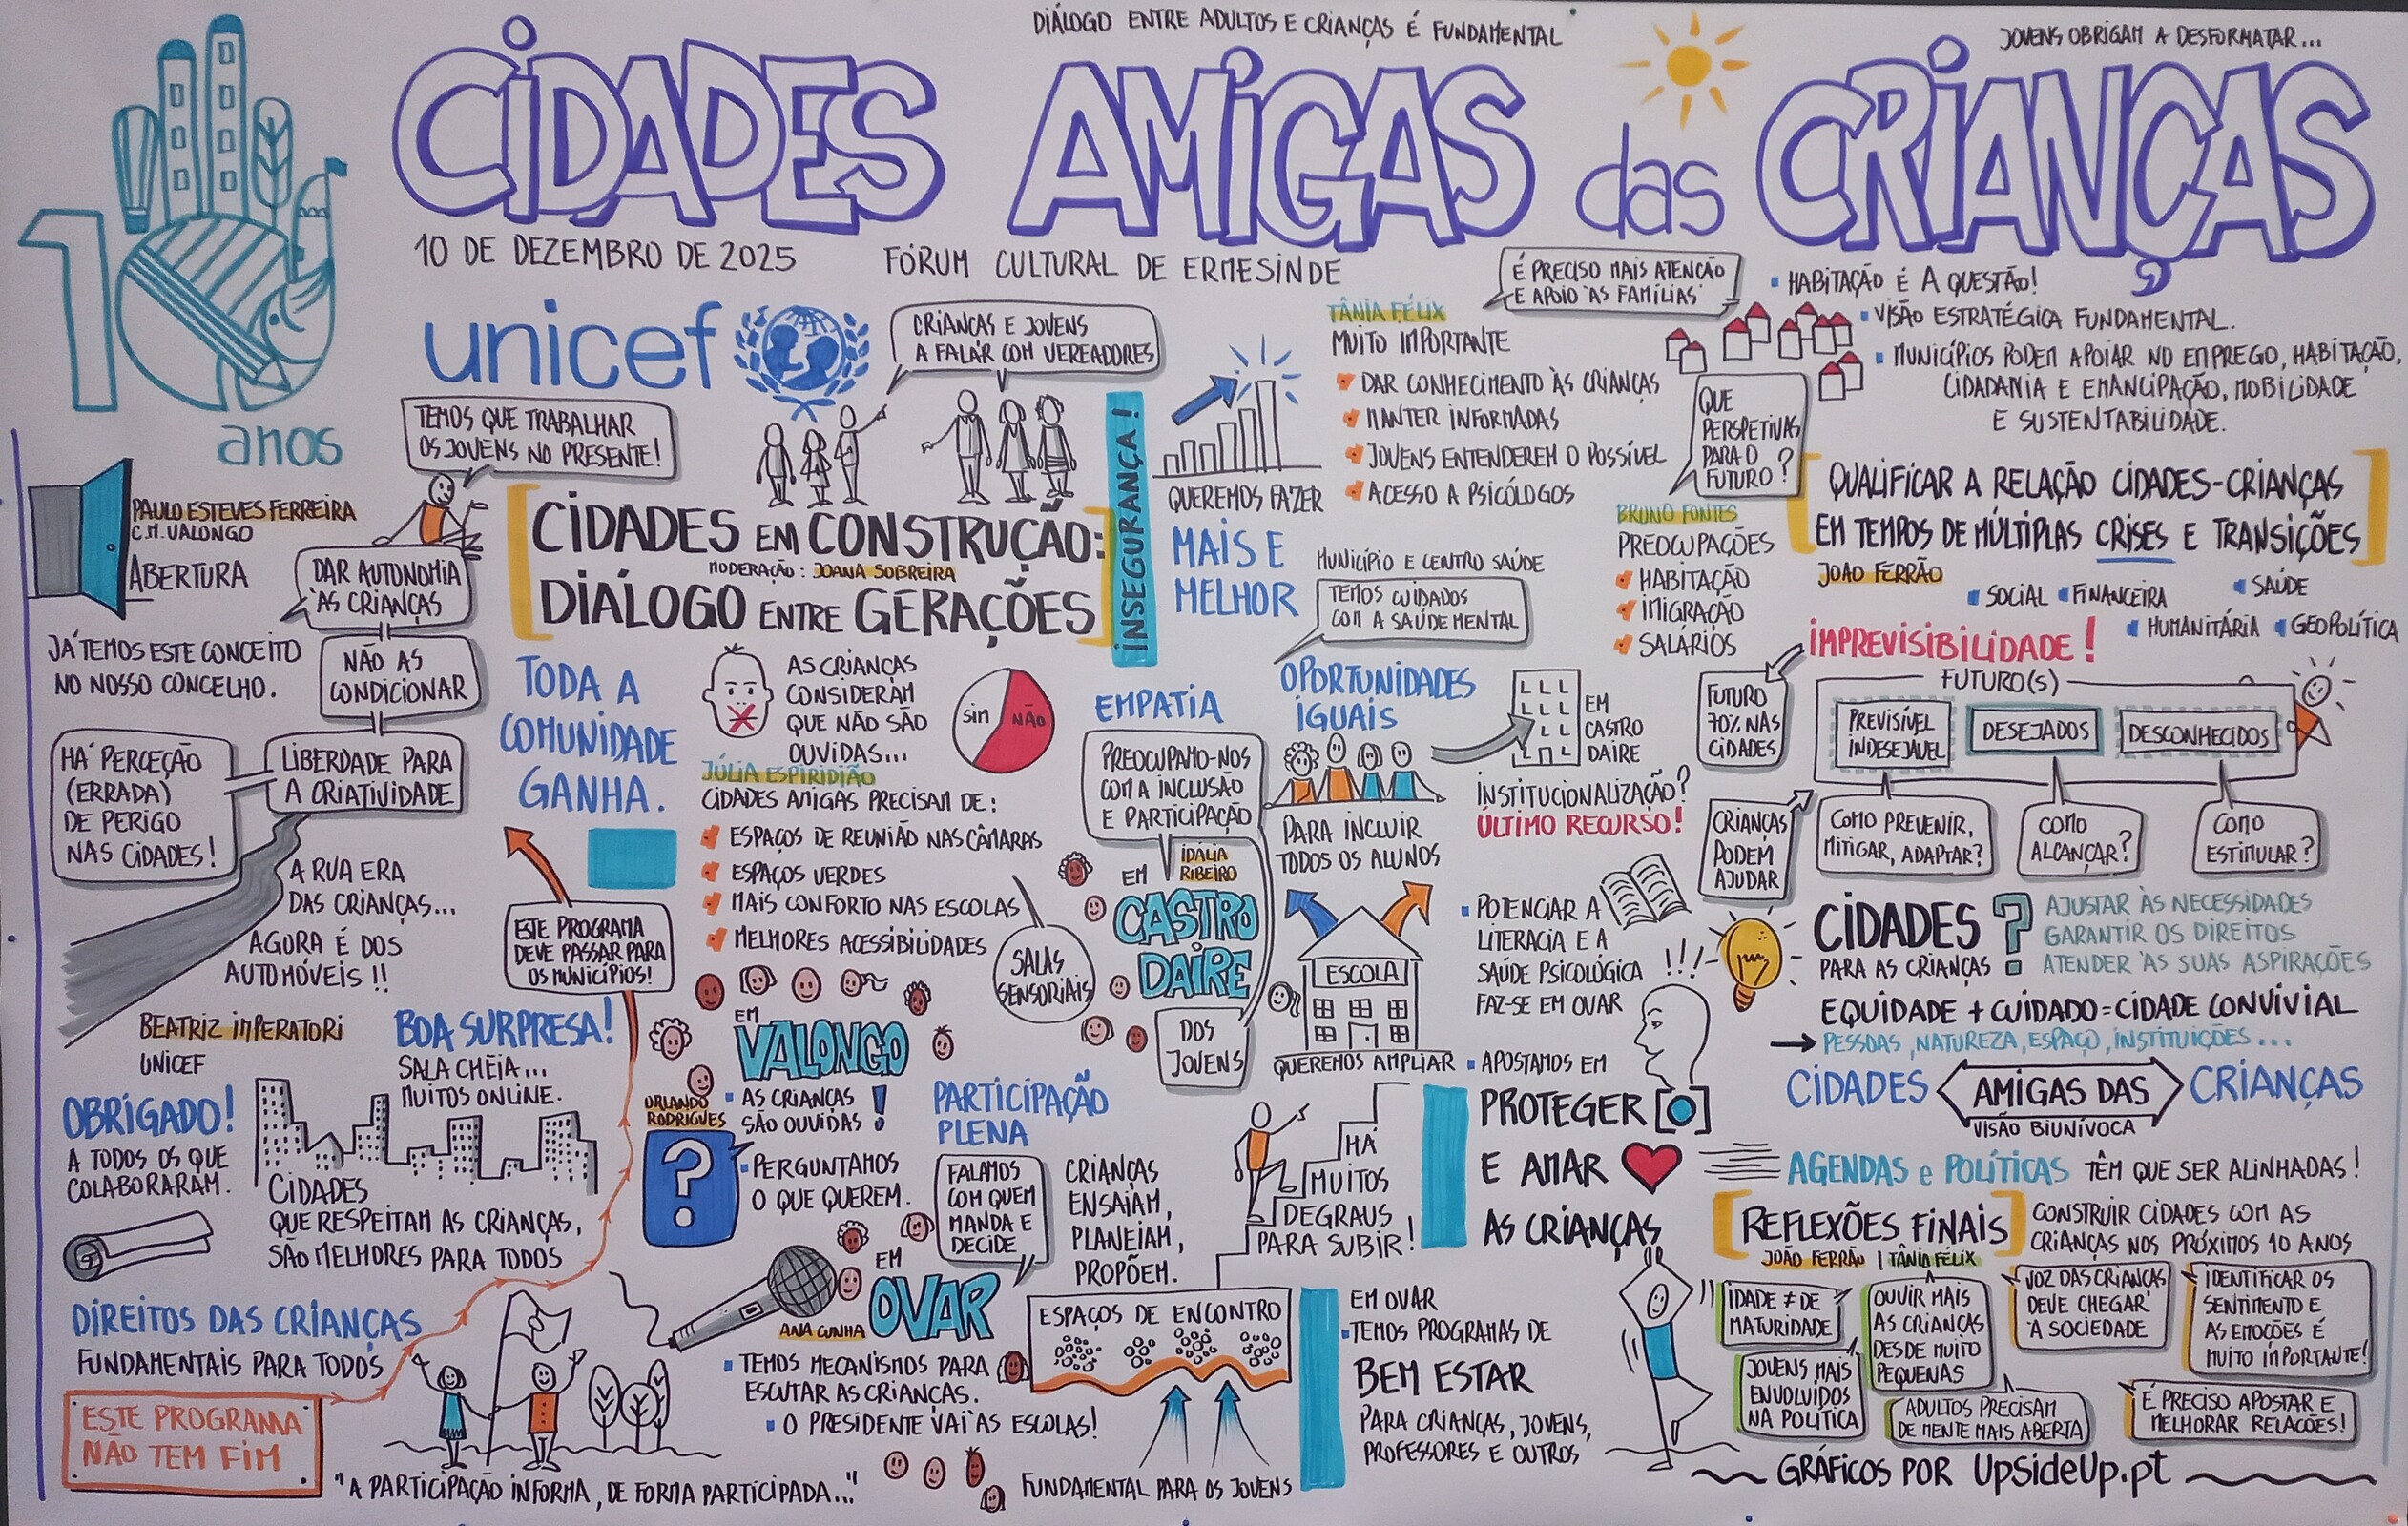 DIÁLOGO ENTRE ADULTOS E CRIANÇAS É FUNDAMENTAL
JOVENS OBRIGAM A DESFORMATAR...
CIDADES AMIGAS das CRIANÇAS
10
anos
10 DE DEZEMBRO DE 2025
FÓRUM CULTURAL DE ERMESINDE
unicef
CRIANÇAS E JOVENS
A FALAR COM VEREADORES
TEMOS QUE TRABALHAR
OS JOVENS NO PRESENTE!
PAULO ESTEVES FERREIRA
C.M. VALONGO
ABERTURA
DAR AUTONOMIA
ÀS CRIANÇAS
JÁ TEMOS ESTE CONCEITO
NO NOSSO CONCELHO.
NÃO AS
CONDICIONAR
HÁ PERCEÇÃO
(ERRADA)
DE PERIGO
NAS CIDADES!
LIBERDADE PARA
A CRIATIVIDADE
A RUA ERA
DAS CRIANÇAS...
AGORA É DOS
AUTOMÓVEIS !!
BEATRIZ IMPERATORI
UNICEF
BOA SURPRESA!
SALA CHEIA...
MUITOS ONLINE.
OBRIGADO!
A TODOS OS QUE
COLABORARAM.
CIDADES
QUE RESPEITAM AS CRIANÇAS,
SÃO MELHORES PARA TODOS
DIREITOS DAS CRIANÇAS
FUNDAMENTAIS PARA TODOS
ESTE PROGRAMA
NÃO TEM FIM
"A PARTICIPAÇÃO INFORMA, DE FORMA PARTICIPADA..."
CIDADES EM CONSTRUÇÃO:
MODERAÇÃO: JOANA SOBREIRA
DIÁLOGO ENTRE GERAÇÕES
INSEGURANÇA!
TODA A
COMUNIDADE
GANHA.
ESTE PROGRAMA
DEVE PASSAR PARA
OS MUNICÍPIOS!
AS CRIANÇAS
CONSIDERAM
QUE NÃO SÃO
OUVIDAS...
SIM NÃO
JÚLIA ESPIRIDIÃO
CIDADES AMIGAS PRECISAM DE:
ESPAÇOS DE REUNIÃO NAS CÂMARAS
ESPAÇOS VERDES
MAIS CONFORTO NAS ESCOLAS
MELHORES ACESSIBILIDADES
SALAS
SENSORIAIS
EM
VALONGO
ORLANDO
RODRIGUES
AS CRIANÇAS
SÃO OUVIDAS !
?
PERGUNTAMOS
O QUE QUEREM.
PARTICIPAÇÃO
PLENA
FALAMOS
COM QUEM
MANDA E
DECIDE
CRIANÇAS
ENSAIAM,
PLANEIAM,
PROPÕEM.
EM
OVAR
ANA CUNHA
TEMOS MECANISMOS PARA
ESCUTAR AS CRIANÇAS.
O PRESIDENTE VAI ÀS ESCOLAS!
ESPAÇOS DE ENCONTRO
FUNDAMENTAL PARA OS JOVENS
QUEREMOS FAZER
MAIS E
MELHOR
EMPATIA
PREOCUPAMO-NOS
COM A INCLUSÃO
E PARTICIPAÇÃO
IDÁLIA
RIBEIRO
EM
CASTRO
DAIRE
DOS
JOVENS
TÂNIA FÉLIX
MUITO IMPORTANTE
DAR CONHECIMENTO ÀS CRIANÇAS
MANTER INFORMADAS
JOVENS ENTENDEREM O POSSÍVEL
ACESSO A PSICÓLOGOS
É PRECISO MAIS ATENÇÃO
E APOIO ÀS FAMÍLIAS
MUNICÍPIO E CENTRO SAÚDE
TEMOS CUIDADOS
COM A SAÚDE MENTAL
OPORTUNIDADES
IGUAIS
EM
CASTRO
DAIRE
PARA INCLUIR
TODOS OS ALUNOS
INSTITUCIONALIZAÇÃO?
ÚLTIMO RECURSO!
ESCOLA
QUEREMOS AMPLIAR
POTENCIAR A
LITERACIA E A
SAÚDE PSICOLÓGICA
FAZ-SE EM OVAR
!!!
APOSTAMOS EM
PROTEGER
E AMAR
AS CRIANÇAS
HÁ
MUITOS
DEGRAUS
PARA SUBIR!
EM OVAR
TEMOS PROGRAMAS DE
BEM ESTAR
PARA CRIANÇAS, JOVENS,
PROFESSORES E OUTROS
QUE
PERSPETIVAS
PARA O
FUTURO?
BRUNO FONTES
PREOCUPAÇÕES
HABITAÇÃO
IMIGRAÇÃO
SALÁRIOS
HABITAÇÃO É A QUESTÃO!
VISÃO ESTRATÉGICA FUNDAMENTAL.
MUNICÍPIOS PODEM APOIAR NO EMPREGO, HABITAÇÃO,
CIDADANIA E EMANCIPAÇÃO, MOBILIDADE
E SUSTENTABILIDADE.
QUALIFICAR A RELAÇÃO CIDADES-CRIANÇAS
EM TEMPOS DE MÚLTIPLAS CRISES E TRANSIÇÕES
JOÃO FERRÃO
SOCIAL
FINANCEIRA
SAÚDE
HUMANITÁRIA
GEOPOLÍTICA
IMPREVISIBILIDADE!
FUTURO
70% NAS
CIDADES
FUTURO(S)
PREVISÍVEL
INDESEJÁVEL
DESEJADOS
DESCONHECIDOS
CRIANÇAS
PODEM
AJUDAR
COMO PREVENIR,
MITIGAR, ADAPTAR?
COMO
ALCANÇAR?
COMO
ESTIMULAR?
CIDADES
PARA AS CRIANÇAS
?
AJUSTAR ÀS NECESSIDADES
GARANTIR OS DIREITOS
ATENDER ÀS SUAS ASPIRAÇÕES
EQUIDADE + CUIDADO = CIDADE CONVIVIAL
→ PESSOAS, NATUREZA, ESPAÇO, INSTITUIÇÕES...
CIDADES AMIGAS DAS CRIANÇAS
VISÃO BIUNÍVOCA
AGENDAS e POLÍTICAS TÊM QUE SER ALINHADAS!
REFLEXÕES FINAIS
JOÃO FERRÃO | TÂNIA FÉLIX
CONSTRUIR CIDADES COM AS
CRIANÇAS NOS PRÓXIMOS 10 ANOS
IDADE ≠ DE
MATURIDADE
OUVIR MAIS
AS CRIANÇAS
DESDE MUITO
PEQUENAS
VOZ DAS CRIANÇAS
DEVE CHEGAR
À SOCIEDADE
IDENTIFICAR OS
SENTIMENTO E
AS EMOÇÕES É
MUITO IMPORTANTE!
JOVENS MAIS
ENVOLVIDOS
NA POLÍTICA
ADULTOS PRECISAM
DE MENTE MAIS ABERTA
É PRECISO APOSTAR E
MELHORAR RELAÇÕES!
GRÁFICOS POR UpSideUp.pt